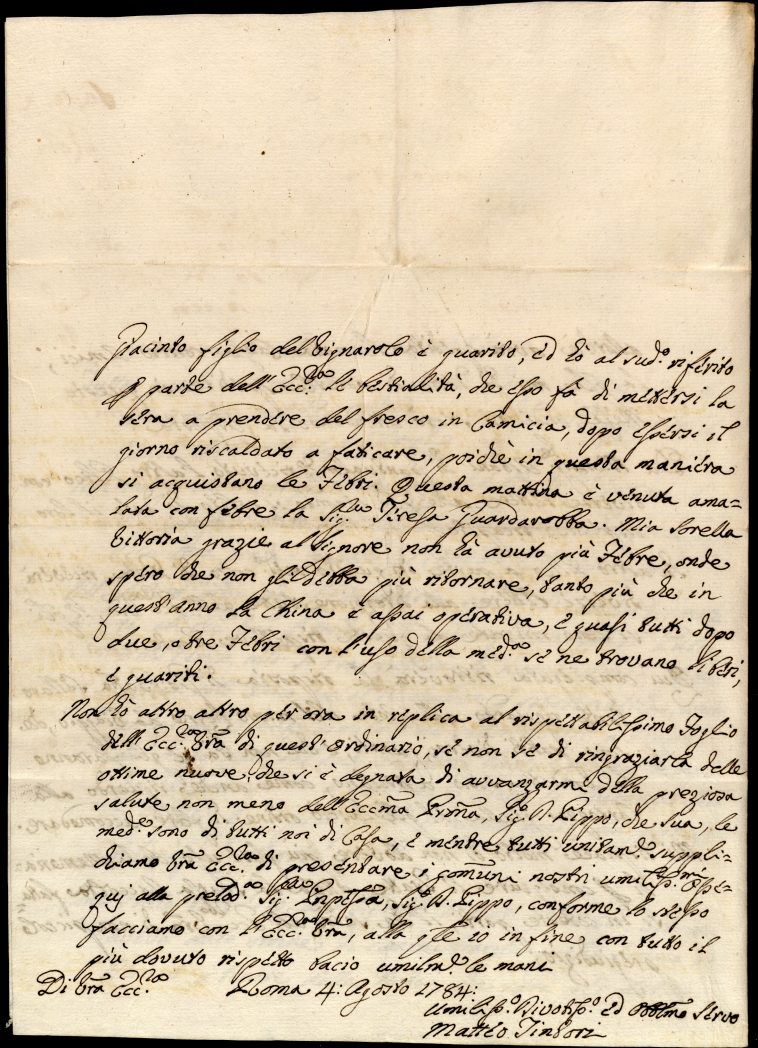 Giacinto figlio del Vignarolo è guarito, ed hò al sud.º riferito
p parte dell'Ecc.za le bestialità, che esso fà di mettersi la
sera a prendere del fresco in Camicia, dopo essersi il
giorno riscaldato a faticare, poichè in questa maniera
si acquistano le Febri. Questa mattina è venuta ama=
lata con febre la Sig.ra Teresa Guardarobba. Mia Sorella
Vittoria grazie al Signore non hà avuto più Febre, onde
spero che non gli debba più ritornare, tanto più che in
quest'anno la China è assai operativa, e quasi tutti dopo
due, o tre Febri con l'uso della med.ma se ne trovano liberi,
e guariti.
Non hò altro altro per ora in replica al rispettabilissimo Foglio
dell'Ecc.za Vr̃a di quest'Ordinario, se non se di ringraziarla delle
ottime nuove, che si è degnata di avvanzarme della preziosa
salute, non meno dell'Eccm̃a Prñ̃a, Sig.r D. Pippo, che sua, le
med.e sono di tutti noi di Casa, e mentre tutti unitam.e suppli=
chiamo Vr̃a Ecc.za di presentare i comuni nostri umiliss.mi Osse=
quj alla prelod.ma Sig.ra Pnp̃essa, Sig.r D. Pippo, conforme lo stesso
facciamo con l'Ecc.za Vr̃a, alla q̃le io in fine con tutto il
più dovuto rispetto bacio umilm̃.e le mani
Di Vr̃a Ecc.za Roma 4: Agosto 1784:
Umiliss.º Divotiss.º ed Obblm̃o Servo
Matteo Tintori